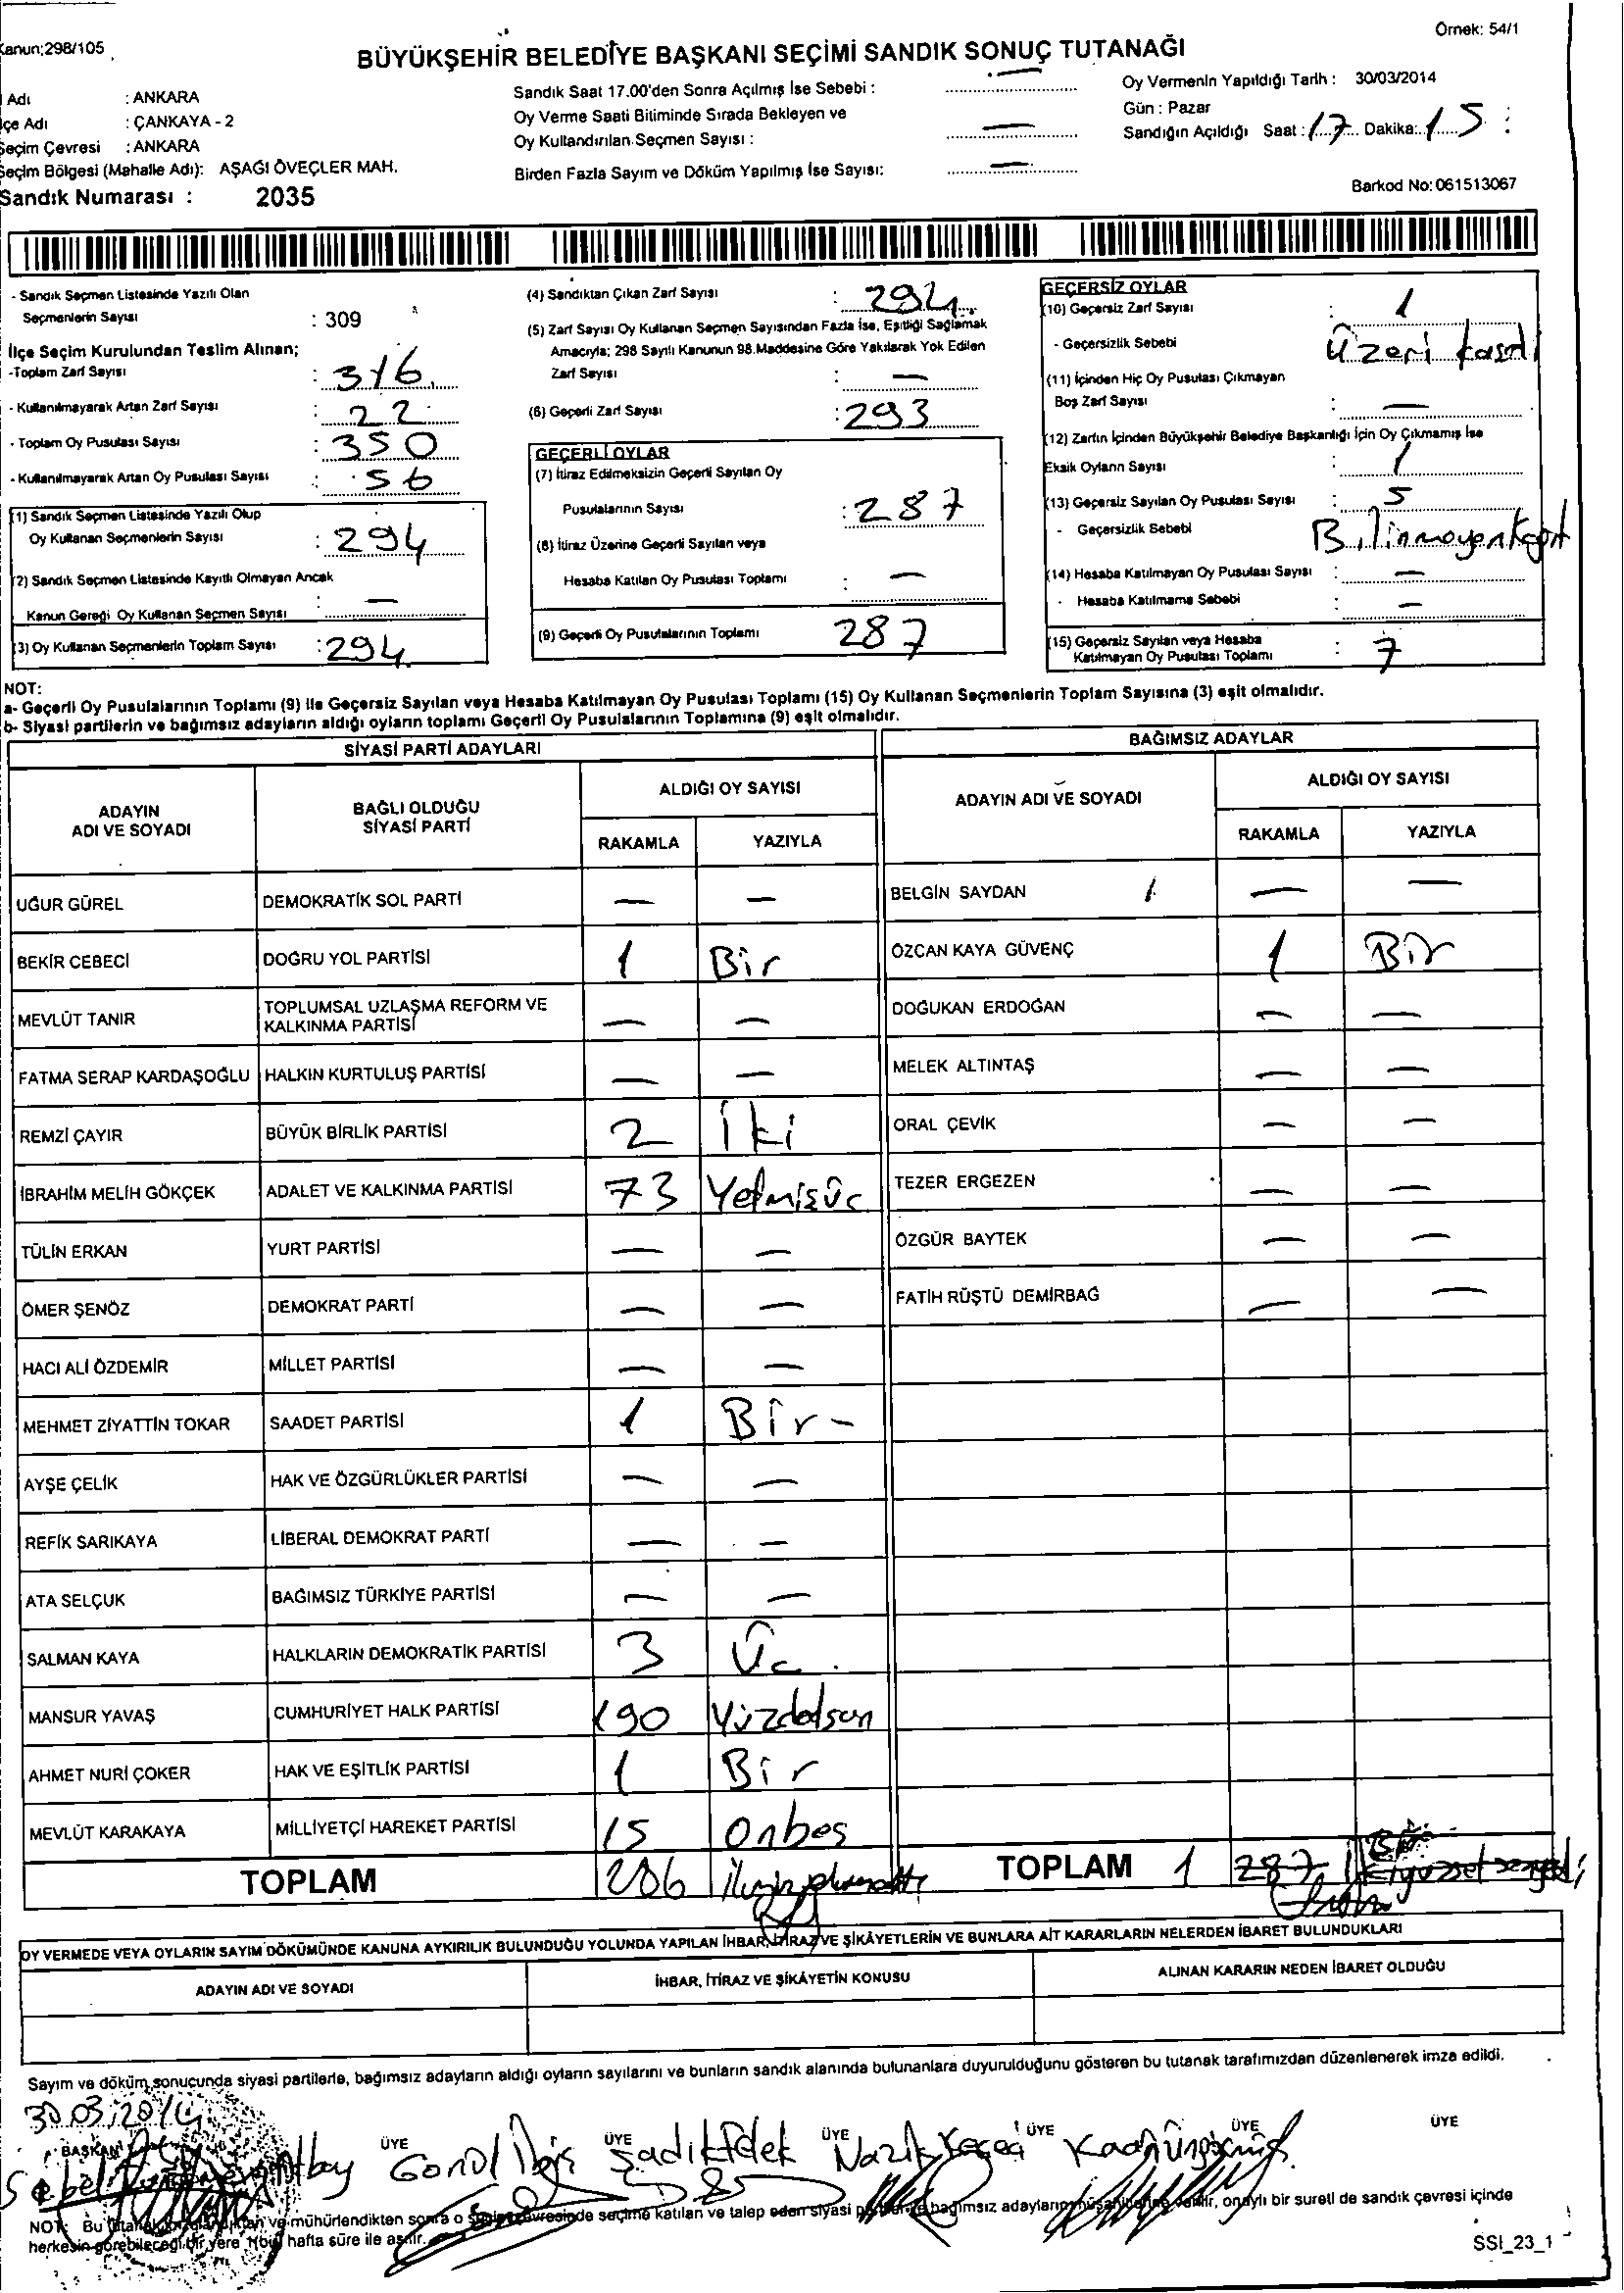 Örnek: 54/1
Kanun;298/105
BÜYÜKŞEHİR BELEDİYE BAŞKANI SEÇİMİ SANDIK SONUÇ TUTANAĞI
Adı : ANKARA
İçe Adı : ÇANKAYA - 2
Seçim Çevresi : ANKARA
Seçim Bölgesi (Mahalle Adı): AŞAĞI ÖVEÇLER MAH.
Sandık Numarası : 2035
Sandık Saat 17.00'den Sonra Açılmış İse Sebebi : —
Oy Verme Saati Bitiminde Sırada Bekleyen ve
Oy Kullandırılan Seçmen Sayısı : —
Birden Fazla Sayım ve Döküm Yapılmış İse Sayısı: —
Oy Vermenin Yapıldığı Tarih : 30/03/2014
Gün : Pazar
Sandığın Açıldığı Saat : 17 Dakika: 15
Barkod No: 061513067
- Sandık Seçmen Listesinde Yazılı Olan
Seçmenlerin Sayısı : 309
İlçe Seçim Kurulundan Teslim Alınan;
-Toplam Zarf Sayısı : 316
- Kullanılmayarak Artan Zarf Sayısı : 22
- Toplam Oy Pusulası Sayısı : 350
- Kullanılmayarak Artan Oy Pusulası Sayısı : 56
(1) Sandık Seçmen Listesinde Yazılı Olup
Oy Kullanan Seçmenlerin Sayısı : 294
(2) Sandık Seçmen Listesinde Kayıtlı Olmayan Ancak
Kanun Gereği Oy Kullanan Seçmen Sayısı : —
(3) Oy Kullanan Seçmenlerin Toplam Sayısı : 294
(4) Sandıktan Çıkan Zarf Sayısı : 294
(5) Zarf Sayısı Oy Kullanan Seçmen Sayısından Fazla İse, Eşitliği Sağlamak
Amacıyla; 298 Sayılı Kanunun 98.Maddesine Göre Yakılarak Yok Edilen
Zarf Sayısı : —
(6) Geçerli Zarf Sayısı : 293
GEÇERLİ OYLAR
(7) İtiraz Edilmeksizin Geçerli Sayılan Oy
Pusulalarının Sayısı : 287
(8) İtiraz Üzerine Geçerli Sayılan veya
Hesaba Katılan Oy Pusulası Toplamı : —
(9) Geçerli Oy Pusulalarının Toplamı 287
GEÇERSİZ OYLAR
(10) Geçersiz Zarf Sayısı : 1
- Geçersizlik Sebebi Üzeri
(11) İçinden Hiç Oy Pusulası Çıkmayan
Boş Zarf Sayısı : —
(12) Zarfın İçinden Büyükşehir Belediye Başkanlığı İçin Oy Çıkmamış İse
Eksik Oyların Sayısı : 1
(13) Geçersiz Sayılan Oy Pusulası Sayısı : 5
- Geçersizlik Sebebi
(14) Hesaba Katılmayan Oy Pusulası Sayısı : —
- Hesaba Katılmama Sebebi : —
(15) Geçersiz Sayılan veya Hesaba
Katılmayan Oy Pusulası Toplamı : 7
NOT:
a- Geçerli Oy Pusulalarının Toplamı (9) ile Geçersiz Sayılan veya Hesaba Katılmayan Oy Pusulası Toplamı (15) Oy Kullanan Seçmenlerin Toplam Sayısına (3) eşit olmalıdır.
b- Siyasi partilerin ve bağımsız adayların aldığı oyların toplamı Geçerli Oy Pusulalarının Toplamına (9) eşit olmalıdır.
SİYASİ PARTİ ADAYLARI
ADAYIN ADI VE SOYADI BAĞLI OLDUĞU SİYASİ PARTİ ALDIĞI OY SAYISI
RAKAMLA YAZIYLA
UĞUR GÜREL DEMOKRATİK SOL PARTİ — —
BEKİR CEBECİ DOĞRU YOL PARTİSİ 1 Bir
MEVLÜT TANIR TOPLUMSAL UZLAŞMA REFORM VE KALKINMA PARTİSİ — —
FATMA SERAP KARDAŞOĞLU HALKIN KURTULUŞ PARTİSİ — —
REMZİ ÇAYIR BÜYÜK BİRLİK PARTİSİ 2 İki
İBRAHİM MELİH GÖKÇEK ADALET VE KALKINMA PARTİSİ 73 Yetmişüc
TÜLİN ERKAN YURT PARTİSİ — —
ÖMER ŞENÖZ DEMOKRAT PARTİ — —
HACI ALİ ÖZDEMİR MİLLET PARTİSİ — —
MEHMET ZİYATTİN TOKAR SAADET PARTİSİ 1 Bir -
AYŞE ÇELİK HAK VE ÖZGÜRLÜKLER PARTİSİ — —
REFİK SARIKAYA LİBERAL DEMOKRAT PARTİ — —
ATA SELÇUK BAĞIMSIZ TÜRKİYE PARTİSİ — —
SALMAN KAYA HALKLARIN DEMOKRATİK PARTİSİ 3 Üc
MANSUR YAVAŞ CUMHURİYET HALK PARTİSİ 190 Yüzdoksan
AHMET NURİ ÇOKER HAK VE EŞİTLİK PARTİSİ 1 Bir
MEVLÜT KARAKAYA MİLLİYETÇİ HAREKET PARTİSİ 15 Onbeş
TOPLAM 286
BAĞIMSIZ ADAYLAR
ADAYIN ADI VE SOYADI ALDIĞI OY SAYISI
RAKAMLA YAZIYLA
BELGİN SAYDAN — —
ÖZCAN KAYA GÜVENÇ 1 Bir
DOĞUKAN ERDOĞAN — —
MELEK ALTINTAŞ — —
ORAL ÇEVİK — —
TEZER ERGEZEN — —
ÖZGÜR BAYTEK — —
FATİH RÜŞTÜ DEMİRBAĞ — —
TOPLAM 1 287 Bir
OY VERMEDE VEYA OYLARIN SAYIM DÖKÜMÜNDE KANUNA AYKIRILIK BULUNDUĞU YOLUNDA YAPILAN İHBAR, İTİRAZ VE ŞİKÂYETLERİN VE BUNLARA AİT KARARLARIN NELERDEN İBARET BULUNDUKLARI
ADAYIN ADI VE SOYADI İHBAR, İTİRAZ VE ŞİKÂYETİN KONUSU ALINAN KARARIN NEDEN İBARET OLDUĞU
Sayım ve döküm sonucunda siyasi partilerle, bağımsız adayların aldığı oyların sayılarını ve bunların sandık alanında bulunanlara duyurulduğunu gösteren bu tutanak tarafımızdan düzenlenerek imza edildi.
30.03.2014
BAŞKAN ÜYE ÜYE ÜYE ÜYE ÜYE ÜYE
NOT: Bu ve mühürlendikten sonra o seçim çevresinde seçime katılan ve talep eden siyasi bağımsız adayların verilir, onaylı bir sureti de sandık çevresi içinde
herkesin görebileceği bir yere hafta süre ile asılır.
SSI_23_1